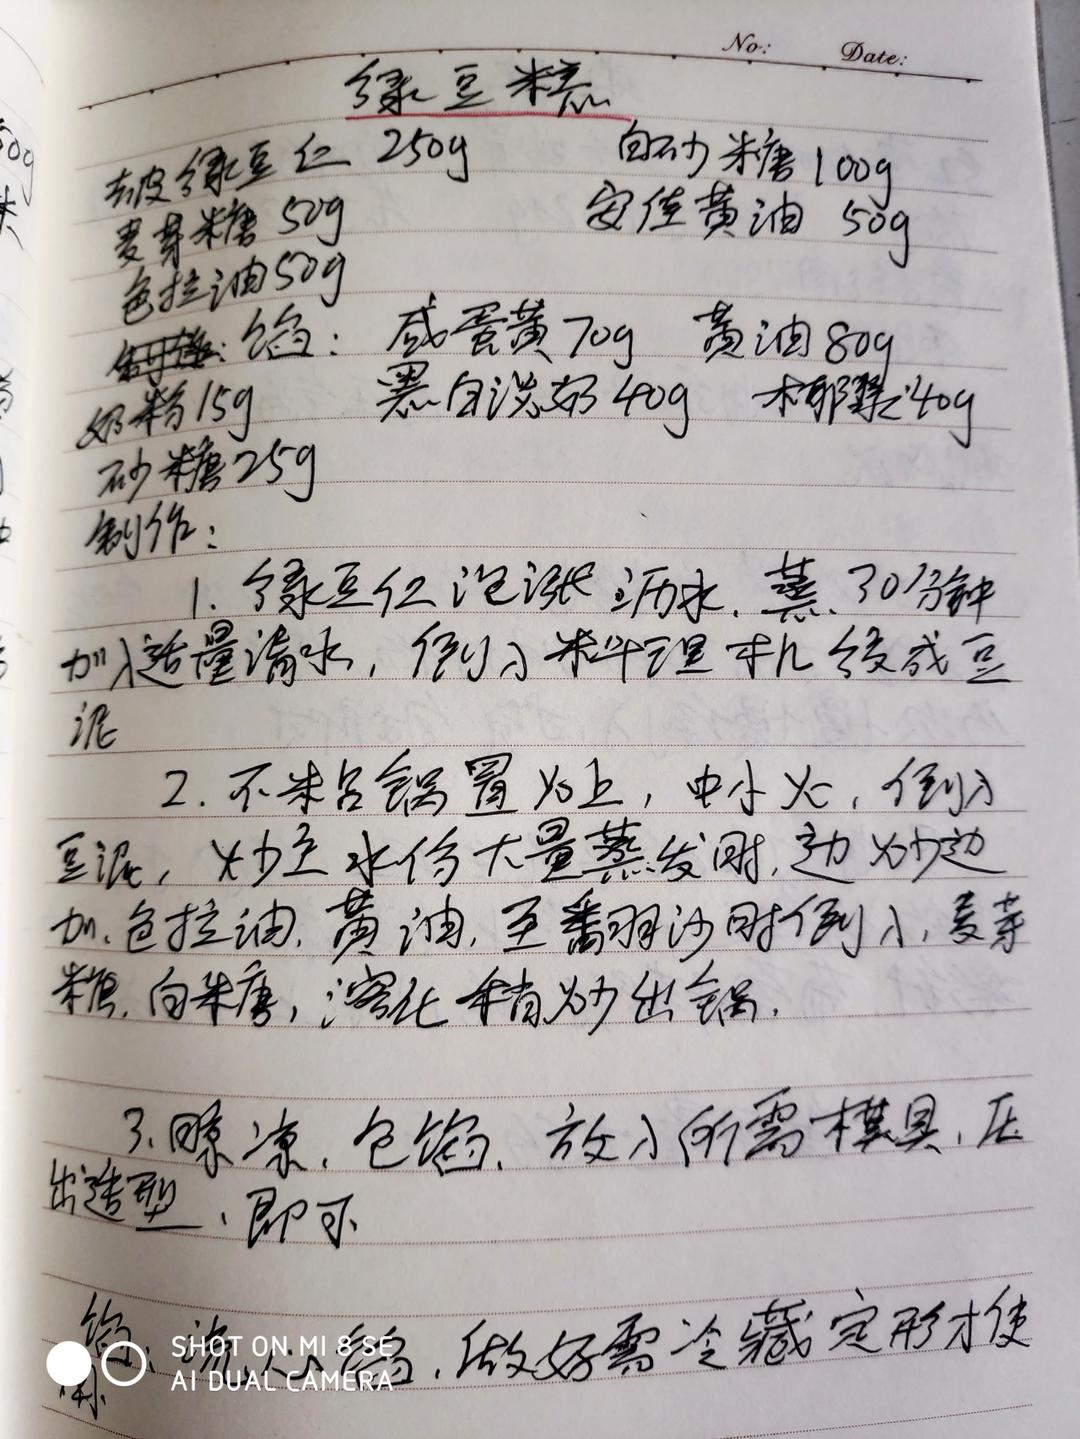 No: Date:
绿豆糕
去皮绿豆仁 250g 白砂糖 100g
麦芽糖 50g 安佳黄油 50g
色拉油 50g
馅: 咸蛋黄 70g 黄油 80g
奶粉 15g 黑白淡奶 40g 椰浆 40g
砂糖 25g
制作:
1. 绿豆仁泡涨沥水, 蒸 30分钟
加入适量清水, 倒入料理机绞成豆
泥
2. 不粘锅置火上, 中小火, 倒入
豆泥, 炒至水份大量蒸发时, 边炒边
加, 色拉油, 黄油, 至翻沙时倒入, 麦芽
糖, 白糖, 溶化稍炒出锅.
3. 晾凉, 包馅, 放入所需模具, 压
出造型, 即可
馅: 流心馅, 做好需冷藏定形才使
用
SHOT ON MI 8 SE
AI DUAL CAMERA